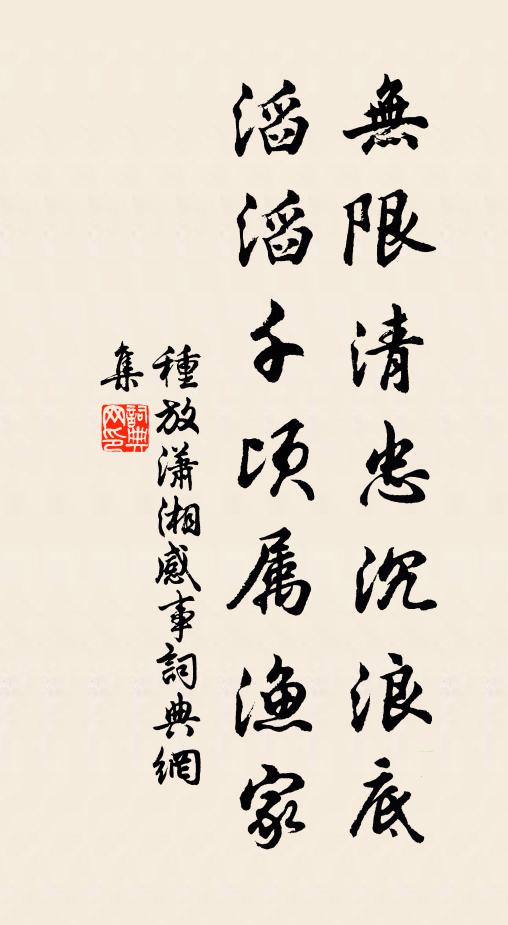 無限清忠沉浪底
滔滔千頃属漁家
種放瀟湘感事詞典網
集
詞典網印